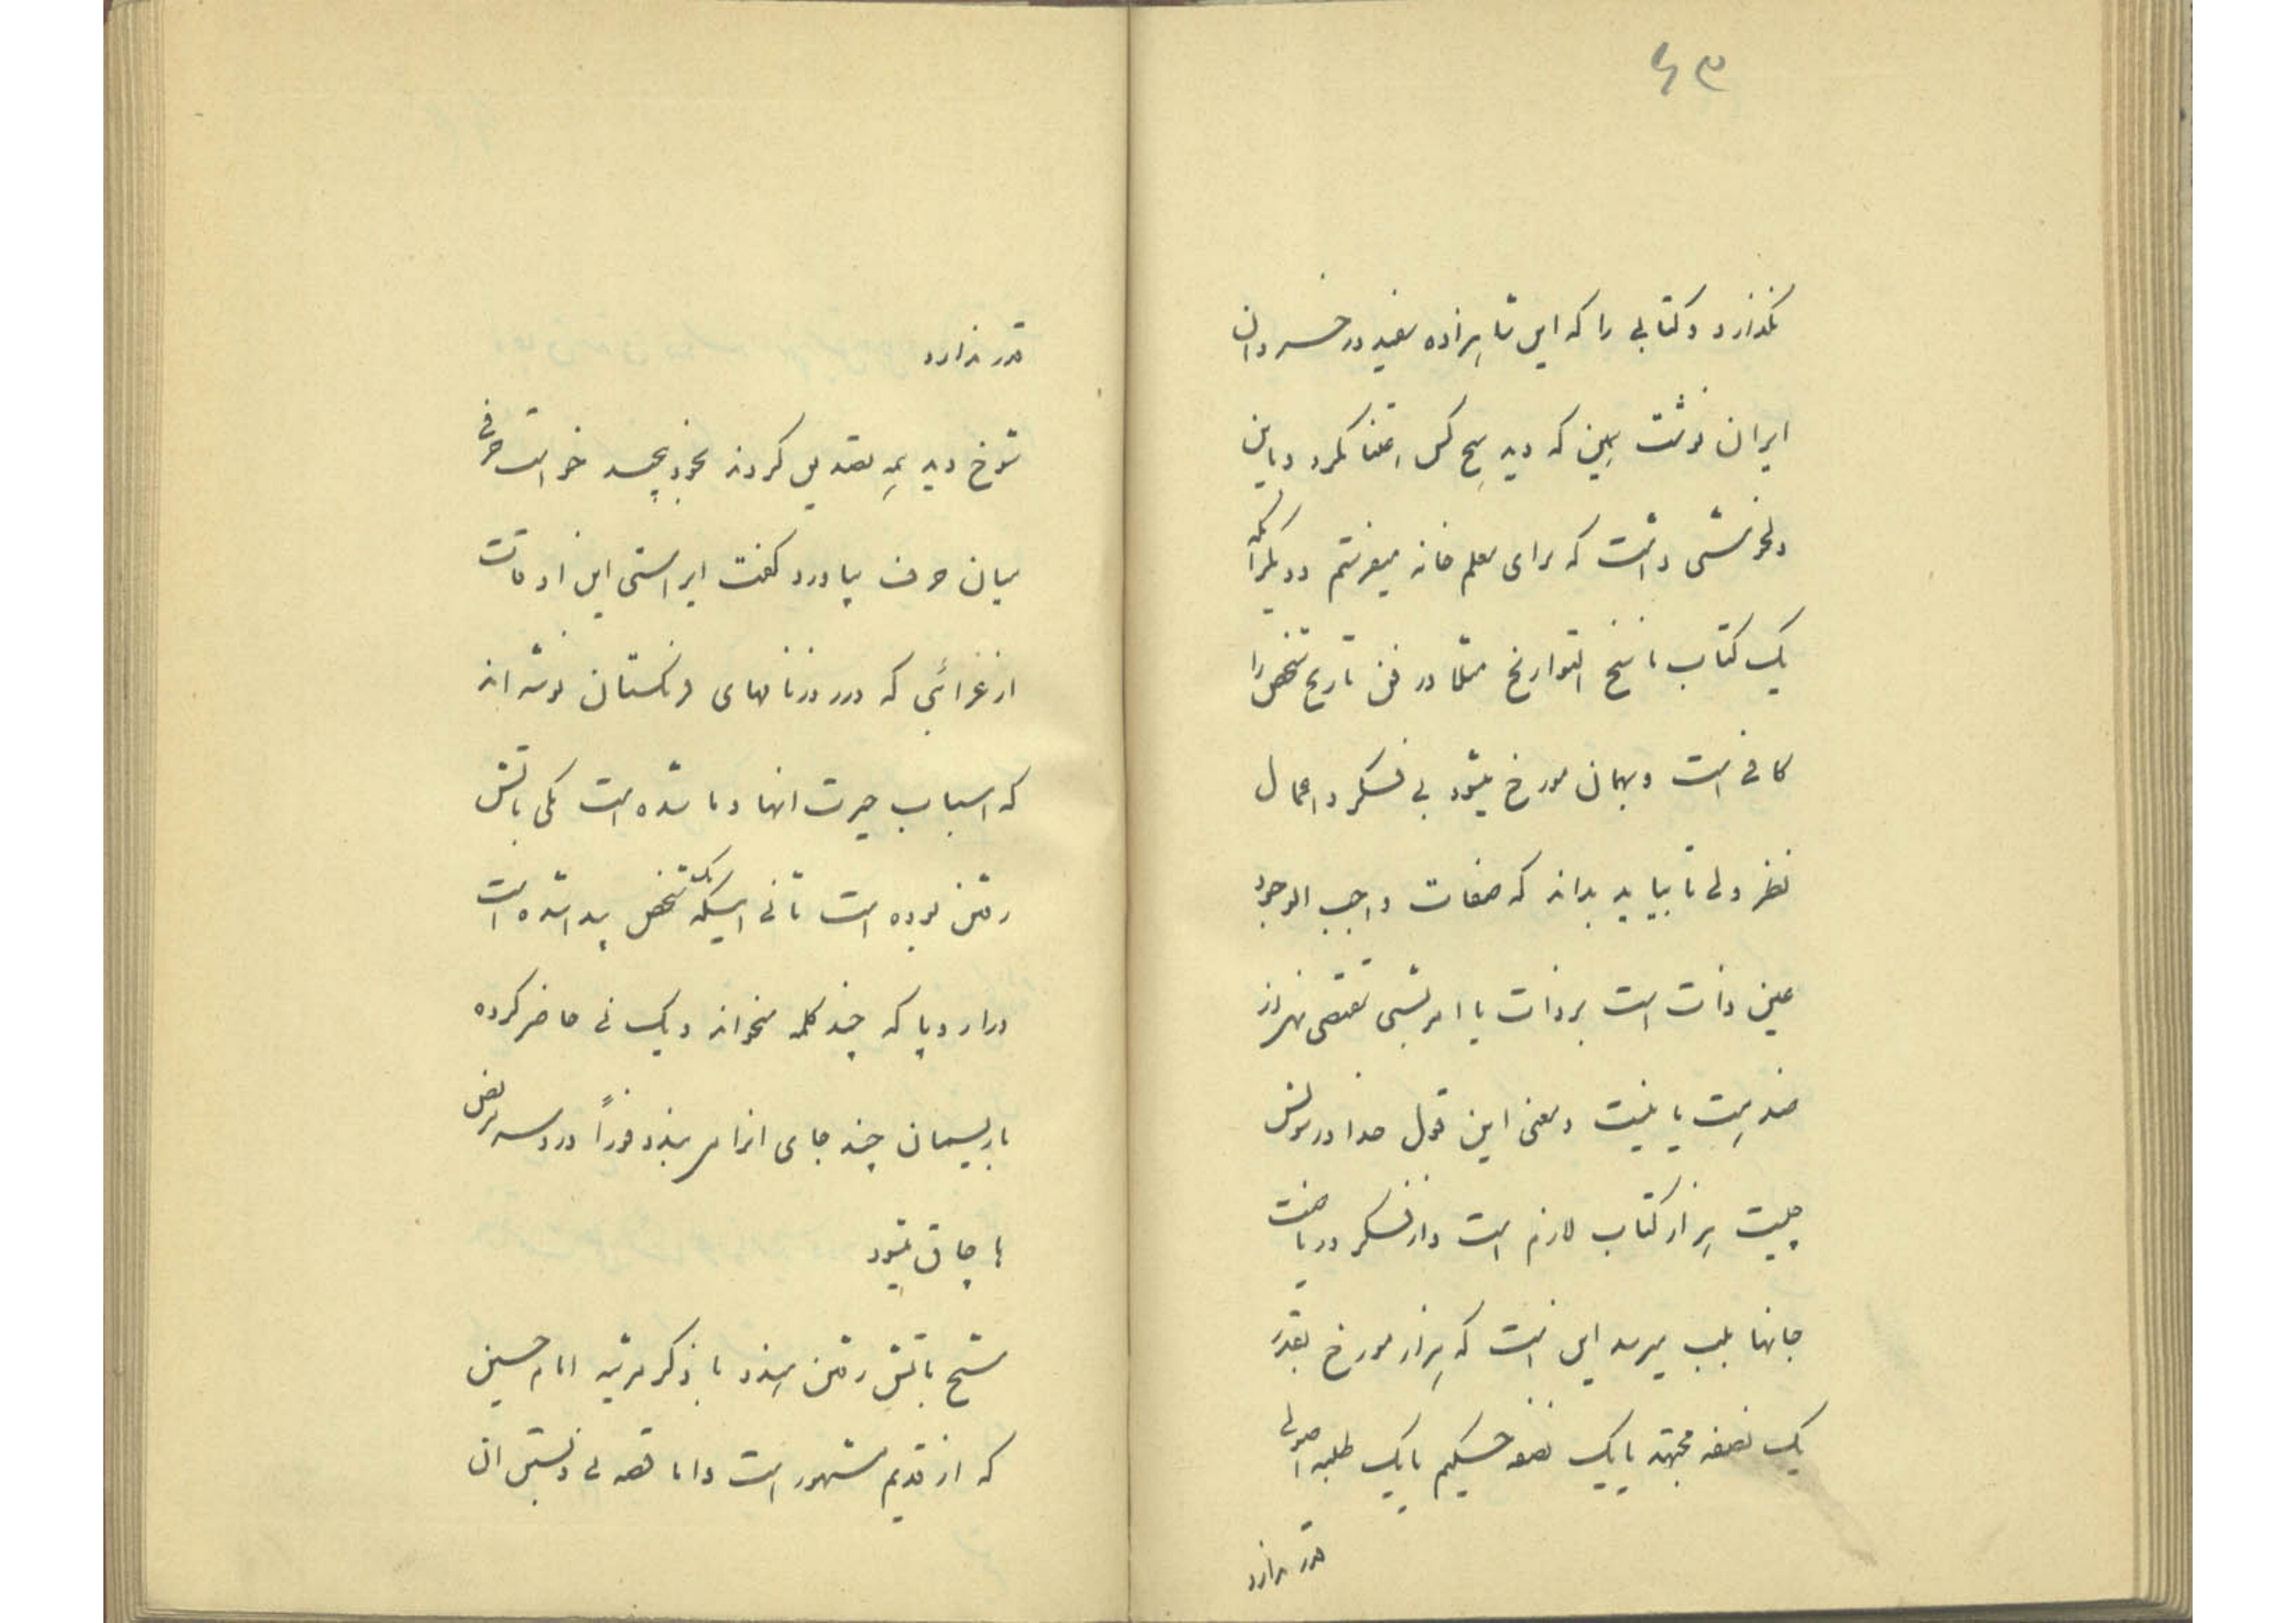 ۴۳
نگذارد و کتابی را که این شاهزاده سفید در خسروان
ایران نوشت ببین که دید هیچ کس اعتنا نکرد و باین
دلخوشی داشت که برای معلم خانه میفرستم و دیگر آنکه
یک کتاب ناسخ التواریخ مثلا در فن تاریخ شخص را
کافی است و بهمان مورخ میشود بی فکر و اعمال
نظر ولی تا بیاید بداند که صفات واجب الوجود
عین ذات است بر ذات یا امر بشی مقتضی نهی از
ضد هست یا نیست و معنی این قول خدا و رسولش
چیست هزار کتاب لازم است و از فکر و ریاضت
جانها بلب میرسد این است که هزار مورخ بقدر
یک نصفه مجتهد یا یک نصفه حکیم یا یک طلبه اصولی
قدر ندارد
قدر ندارد
شوخ دید همه تصدیق کردند بخود پیچید خواست حرفی
میان حرف بیاورد گفت ای راستی این اوقات
از غرائبی که در روزنامهای فرنگستان نوشته اند
که اسباب حیرت آنها و ما شده است یکی بآتش
رفتن بوده است ثانی اینکه یک شخص پیدا شده است
در اروپا که چند کلمه میخواند و یک نی حاضر کرده
با ریسمان چند جای آنرا می بندد فوراً درد سر مریض
ها چاق میشود
شیخ بآتش رفتن هنود با ذکر مرثیه امام حسین
که از قدیم مشهور است و اما قصه نی و بستن آن